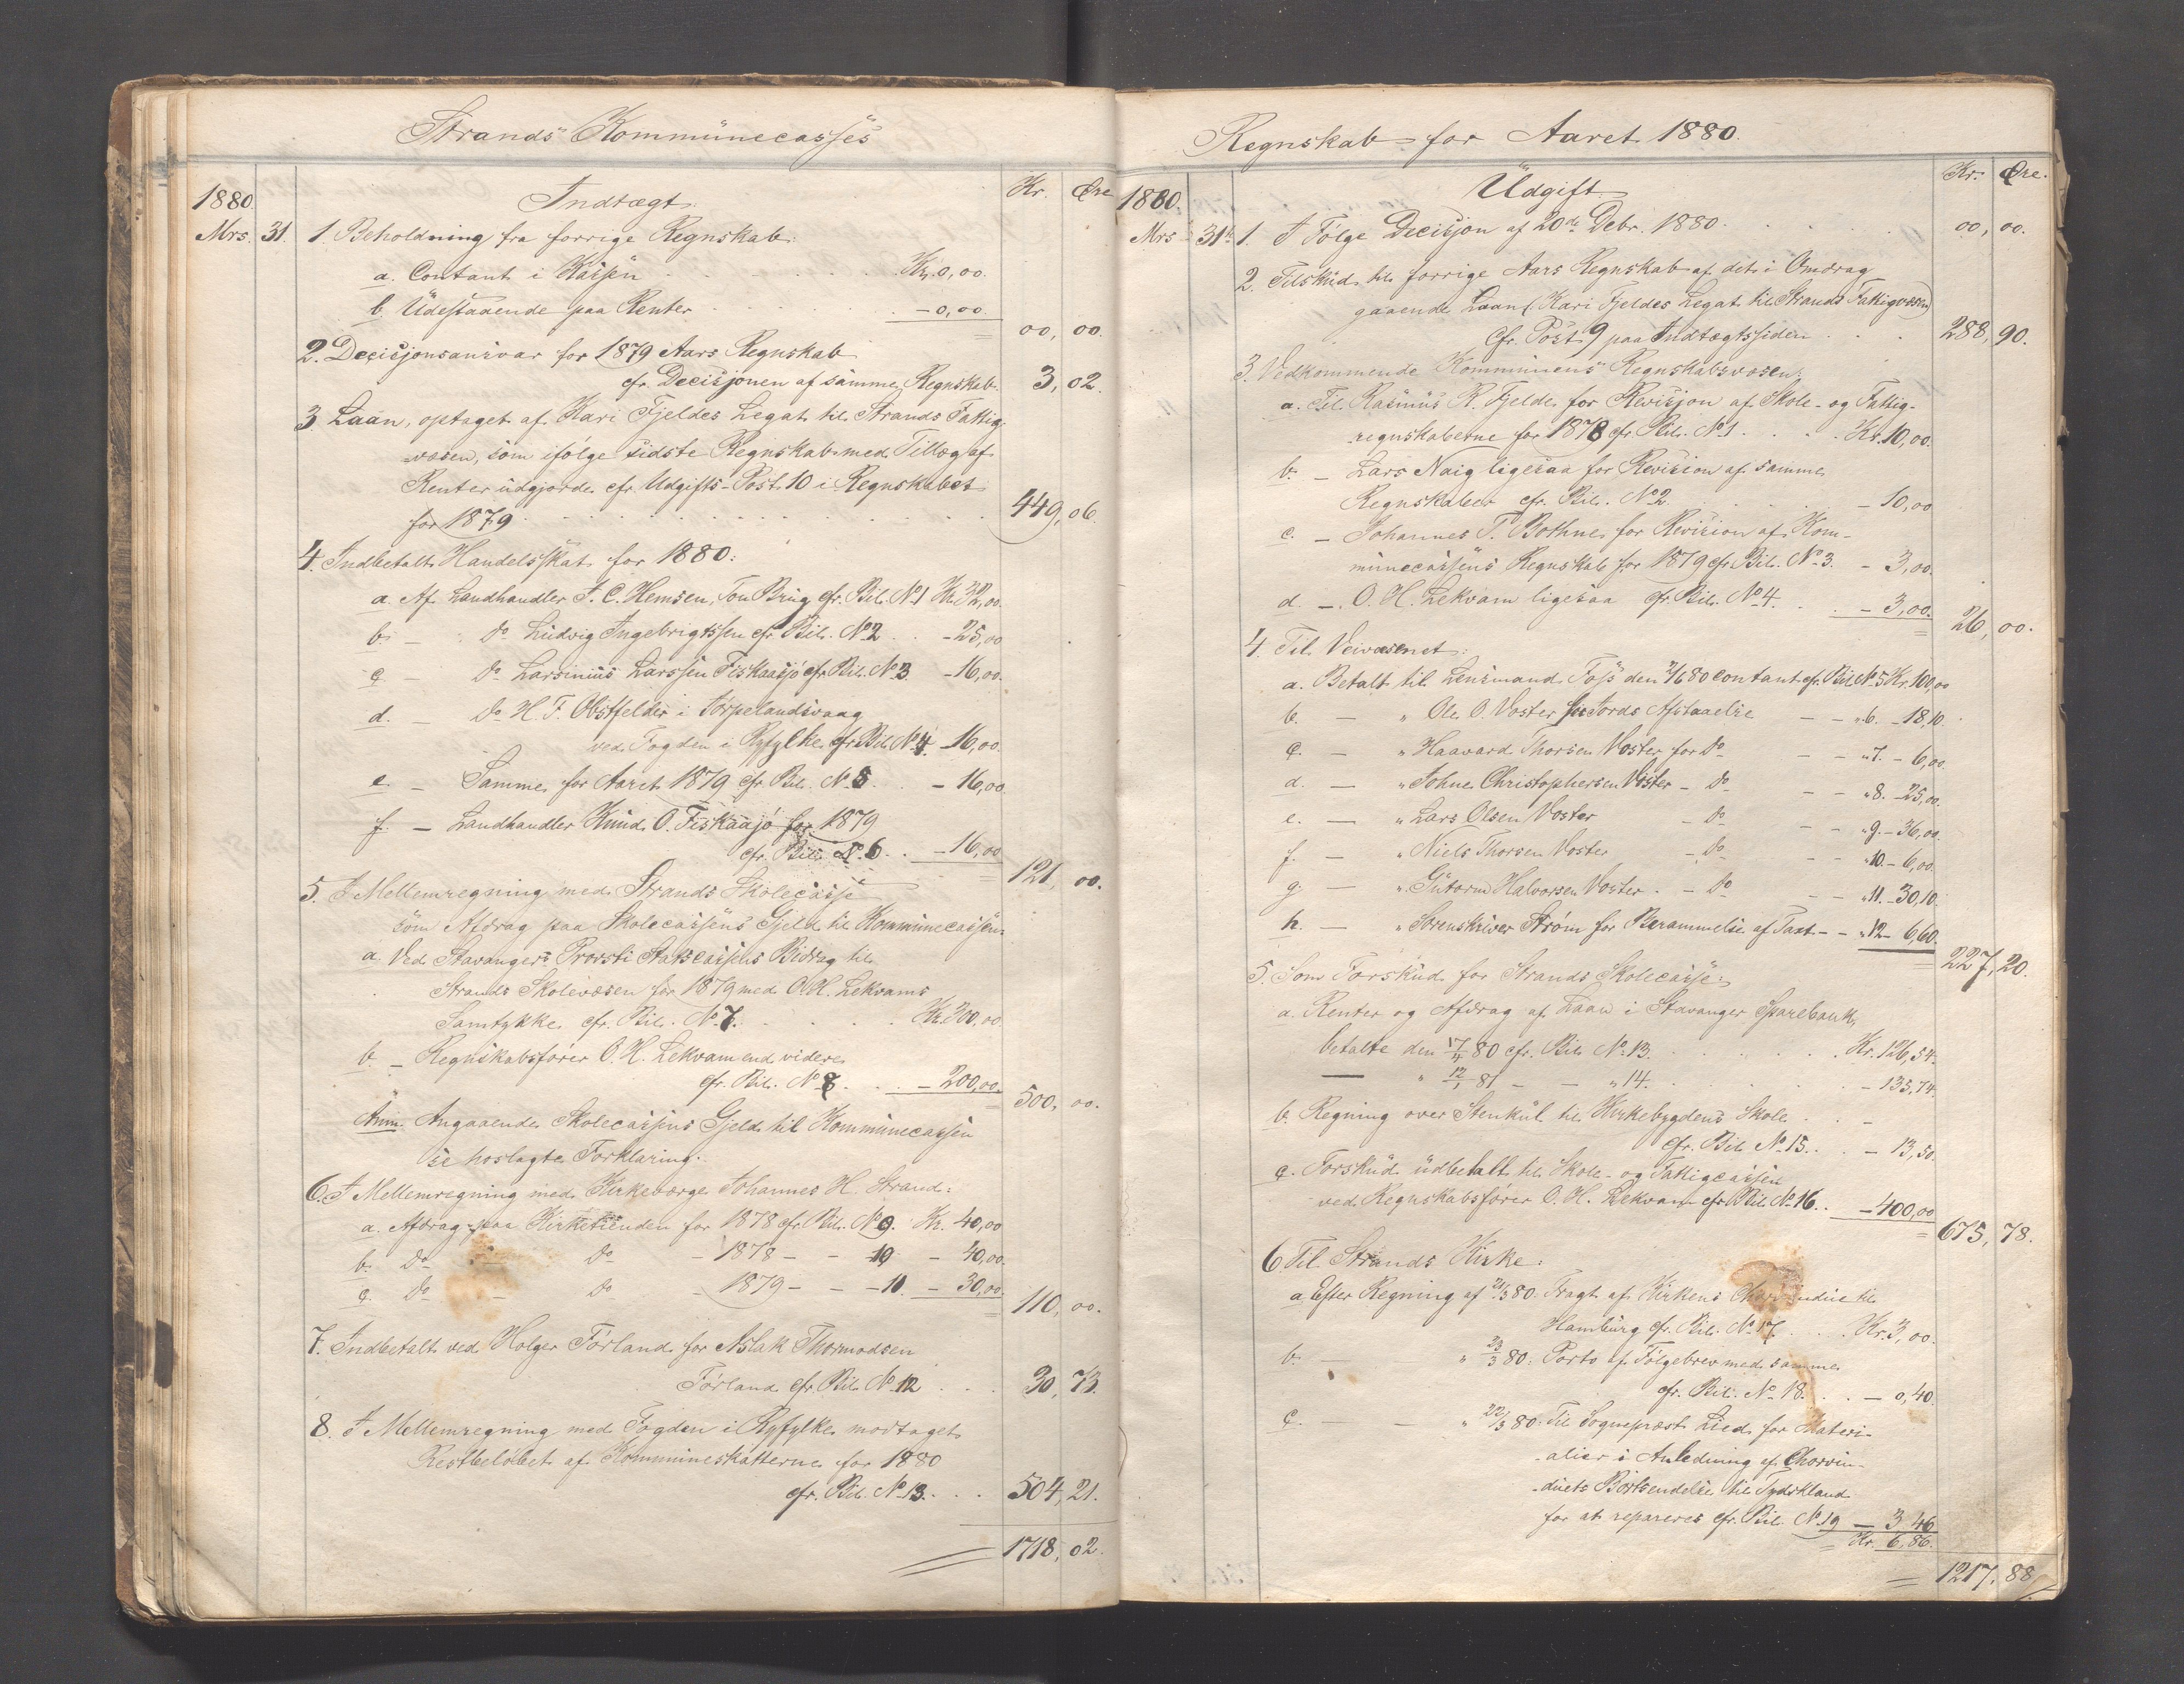 Strands Kommunecasses
1880. Indtægt Kr. Øre
Mrs. 31. 1. Beholdning fra forrige Regnskab:
a. Contant i Kassen . . . Kr. 0,00.
b. Udestaaende paa Renter . . . - 0,00.
00, 00.
2. Decisjonsansvar for 1879 Aars Regnskab
cfr. Decisjonen af samme Regnskab. 3, 02.
3. Laan, optaget af Kari Fjeldes Legat til Strands Fattig-
-væsen, som ifølge sidste Regnskab med Tillæg af
Renter udgjorde cfr. Udgifts-Post 10 i Regnskabet
for 1879 . . . 449, 06.
4. Indbetalt Handelsskat for 1880:
a. Af Landhandler T. C. Hemsen, Tou Brug cfr. Bil. No 1 Kr. 32,00.
b. - do Ludvig Ingebrigtssen cfr. Bil. No 2 . . - 25,00
c. - do Larsinius Larssen Fiskaasjø cfr. Bil. No 3. - 16,00.
d. - do H. F. Obstfelder i Jørpelandsvaag
ved Fogden i Ryfylke cfr. Bil. No 4. - 16,00.
e. - Samme for Aaret 1879 cfr. Bil. No 5. . - 16,00.
f. - Landhandler Knud O. Fiskaasjø for 1879
cfr. Bil. No 6 . . - 16,00
121, 00.
5. I Mellemregning med Strands Skolecasse
som Afdrag paa Skolecassens Gjeld til Kommunecassen.
a. Ved Stavangers Provsti Skolecasses Bidrag til
Strands Skolevæsen for 1879 med O. H. Lekvams
Samtykke cfr. Bil. No 7. . . . Kr. 300,00
b. - Regnskabsfører O. H. Lekvam end videre
cfr. Bil. No 8. . . - 200,00.
500, 00.
Anm. Angaaende Skolecassens Gjeld til Kommunecassen
se hoslagte Forklaring.
6. I Mellemregning med Kirkeværge Johannes H. Strand:
a. Afdrag paa Kirketienden for 1878 cfr. Bil. No 9. Kr. 40,00
b. do - do - 1878 - - 10 - 40,00.
c. do - do - 1879 - - 11. - 30,00.
110, 00.
7. Indbetalt ved Holger Førland for Aslak Thormodsen
Førland cfr. Bil. No 12 . . . 30, 73.
8. I Mellemregning med Fogden i Ryfylke modtaget
Restbeløbet af Kommuneskatterne for 1880
cfr. Bil. No 13. . . 504, 21.
1718, 02.
Regnskab for Aaret 1880.
1880. Udgift Kr. Øre.
Mrs. 31te 1. I Følge Decisjon af 20de Debr. 1880. . . . 00, 00.
2. Tilskud til forrige Aars Regnskab af det i Omdrag
gaaende Laan (Kari Fjeldes Legat til Strands Fattigvæsen)
cfr. Post 9 paa Indtægtssiden . . . 288, 90.
3. Vedkommende Kommunens Regnskabsvæsen:
a. Til Rasmus R. Fjelde for Revisjon af Skole- og Fattig-
regnskaberne for 1878 cfr. Bil. No 1 . . . Kr. 10,00.
b. - Lars Naig ligesaa for Revision af samme
Regnskaber cfr. Bil. No 2 . . . - 10,00
c. - Johannes T. Bothne for Revision af Kom-
munecassens Regnskab for 1879 cfr. Bil. No 3. - 3,00.
d. - O. H. Lekvam ligesaa cfr. Bil. No 4. . . - 3,00.
26, 00.
4. Til Veivæsenet:
a. Betalt til Lensmand Foss den 2/6 80 contant cfr. Bil. No 5 Kr. 100,00
b. - " Ole O. Voster for Jords Afstaaelse - - " 6. - 18,10.
c. - " Haavard Thorsen Voster for do - - " 7. - 6,00.
d. - " Johne Christophersen Voster - do - - " 8. - 25,00.
e. - " Lars Olsen Voster - do - - " 9. - 36,00.
f. - " Niels Thorsen Voster - do - - " 10. - 6,00.
g. - " Gutorm Halvorsen Voster. - do - - " 11. - 30,10.
h. - " Sorenskriver Strøm for Berammelse af Taxt - - " 12 - 6,60.
227, 20.
5. Som Forskud for Strands Skolecasse:
a. Renter og Afdrag af Laan i Stavanger Sparebank,
betalte den 17/4 80 cfr. Bil. No 13. . . . Kr. 126,54.
- " 12/1 81 - - " 14. . . . - 135,74.
b. Regning over Stenkul til Kirkebygdens Skole . . -
cfr. Bil. No 15. . . - 13,50.
c. Forskud udbetalt til Skole- og Fattigcassen
ved Regnskabsfører O. H. Lekvam cfr. Bil. No 16. . - 400,00
675, 78.
6. Til Strands Kirke:
a. Efter Regning af 21/3 80. Fragt af Kirkens til
Hamburg cfr. Bil. No 17. . . Kr. 3,00.
b. - " 23/3 80: Porto af Følgebrev med samme
cfr. Bil. No 18. . . - 0,40.
c. - - " 22/3 80. Til Sognepræst Lied for Materi-
-alier i Anledning af Chorvin-
-duets Bortsendelse til Tydskland
for at repareres cfr. Bil. No 19 - 3,46
Kr. 6,86.
1217, 88